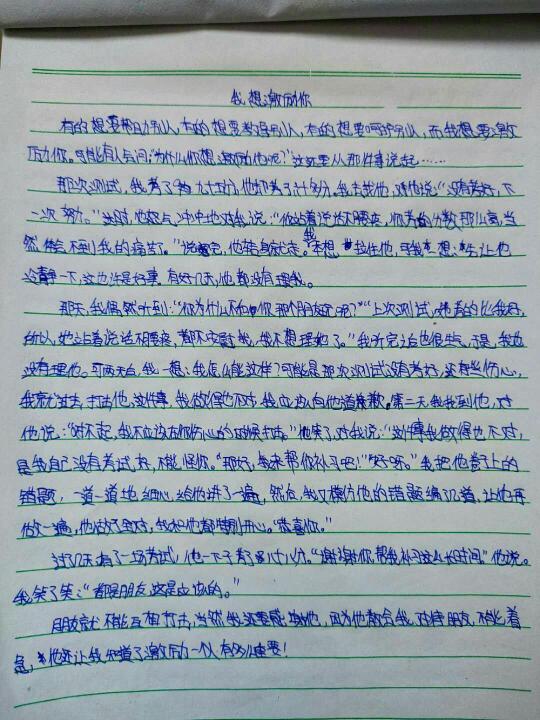 我想激励你
有的想要帮助别人,有的想要教导别人,有的想要呵护别人,而我想要激
励你。可能有人会问:"为什么你想激励他呢?"这就要从那件事说起……
那次测试,我考了九十几分,他却考了七十多分。我去找他,对他说:"没有考好,下
一次努力。"这时,他怒气冲冲地对我说:"你站着说话不腰疼,你考的分数那么高,当
然体会不到我的痛苦了。"说完,他转身就走。我本想拉住他,可我想想,先让他
冷静一下,这也许是好事。有好几天,他都没有理我。
那天,我偶然听到:"你为什么不和你那个朋友玩呢?""上次测试,她考的比我好,
所以,她站着说话不腰疼,都不安慰我,我不想理她了。"我听完后也很生气,于是,我也
没有理他。可两天后,我一想:我怎么能这样?可能是那次测试没有考好,还有些伤心,
我就过去打击他,这件事,我做得也不对,我应该向他道歉。第二天,我找到他,对
他说:"对不起,我不应该在你伤心的时候打击。"他笑了,对我说:"这件事我做得也不对,
是我自己没有考试好,不能怪你。""那好,我来帮你补习吧!""好呀。"我把他卷上的
错题,一道一道地细心给他讲了一遍,然后,我又模仿他的错题编几道,让他再
做一遍,他做了全对,我和他都特别开心。"恭喜你。"
过几天,有了一场考试,他一下子考了八十几分。"谢谢你帮我补习这么长时间。"他说。
我笑了笑:"都是朋友,这是应该的。"
朋友就不能互相打击,当然,我还要感谢他,因为他教会我,对待朋友,不能着
急,他还让我知道了激励一个人有多么重要!